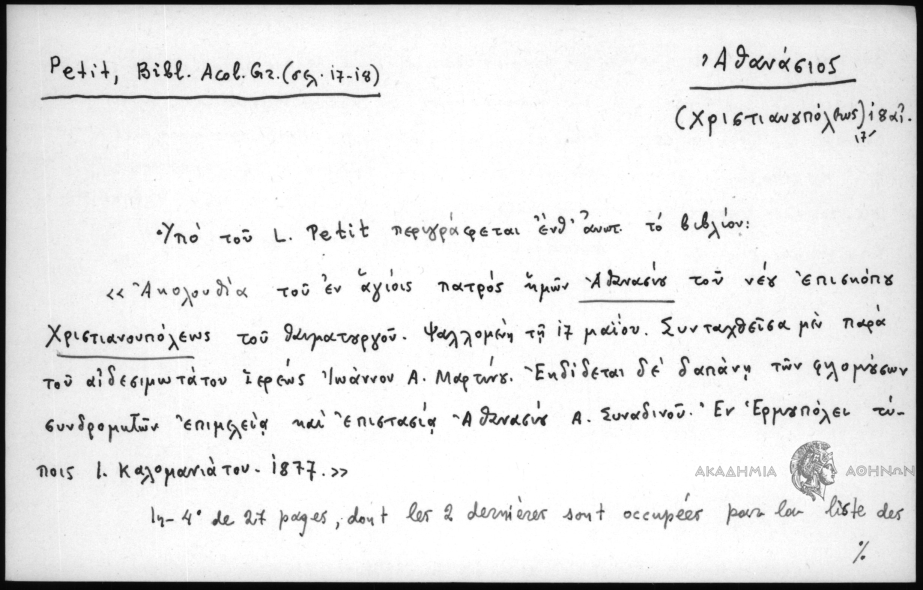 Petit, Bibl. Acol. Gr. (σελ. 17-18)
Ἀθανάσιος
(Χριστιανουπόλεως) 18 αἰ.
17
Ὑπό τοῦ L. Petit περιγράφεται ἔνθ' ἀνωτ. τό βιβλίον:
«Ἀκολουθία τοῦ ἐν ἁγίοις πατρός ἡμῶν Ἀθανασίου τοῦ νέου ἐπισκόπου
Χριστιανουπόλεως τοῦ θαυματουργοῦ. Ψαλλομένη τῇ 17 μαΐου. Συνταχθεῖσα μέν παρά
τοῦ αἰδεσιμωτάτου Ἱερέως Ἰωάννου Α. Μαρτίνου. Ἐκδίδεται δέ δαπάνῃ τῶν φιλομούσων
συνδρομητῶν ἐπιμελείᾳ καί ἐπιστασίᾳ Ἀθανασίου Α. Συναδινοῦ. Ἐν Ἑρμουπόλει τύ-
ποις Ι. Καλομανιάτου. 1877.»
ΑΚΑΔΗΜΙΑ ΑΘΗΝΩΝ
In-4° de 27 pages, dont les 2 dernières sont occupées par la liste des
%